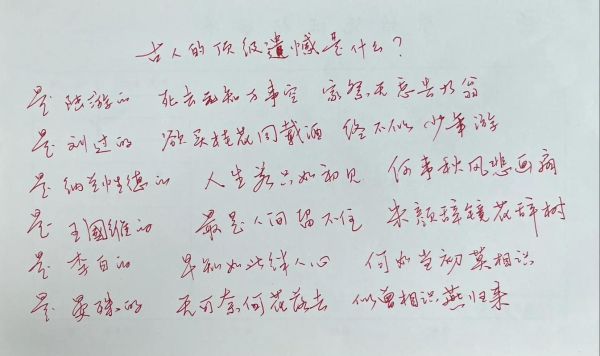 古人的顶级遗憾是什么?
是陆游的 死去元知万事空 家祭无忘告乃翁
是刘过的 欲买桂花同载酒 终不似 少年游
是纳兰性德的 人生若只如初见 何事秋风悲画扇
是王國维的 最是人间留不住 朱颜辞镜花辞树
是李白的 早知如此绊人心 何如当初莫相识
是晏殊的 无可奈何花落去 似曾相识燕归来